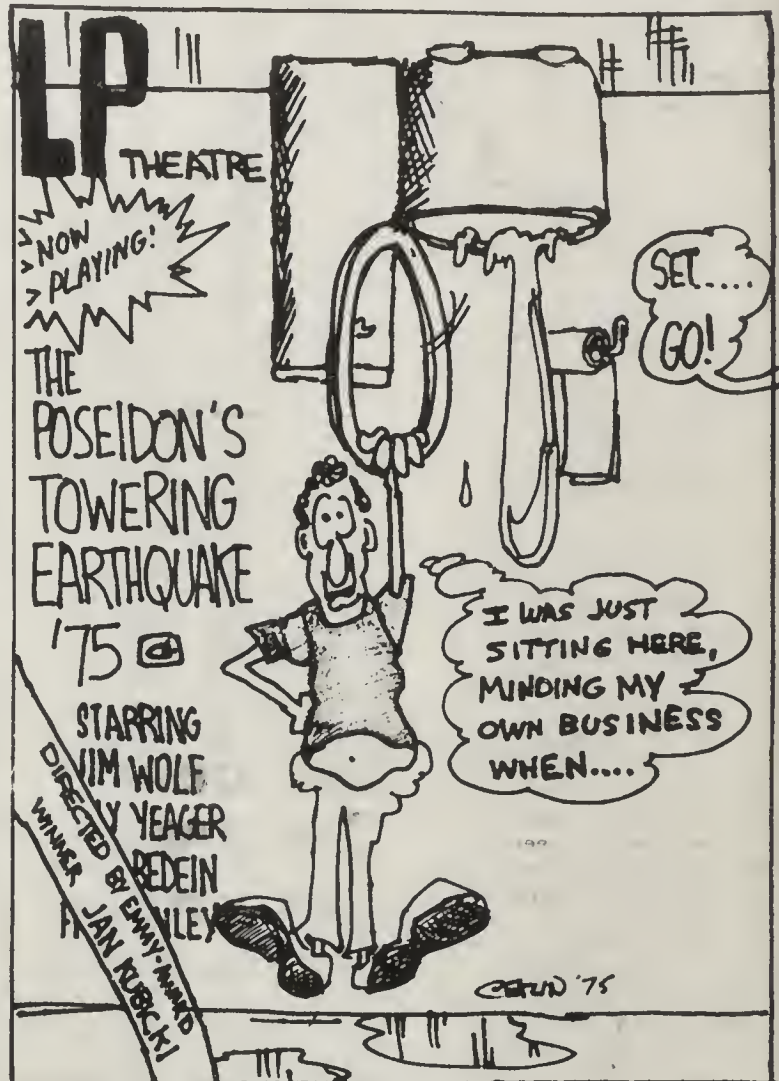 LP
THEATRE
NOW
PLAYING!
THE
POSEIDON'S
TOWERING
EARTHQUAKE
'75
STARRING
JIM WOLF
YEAGER
BEDEIN
DIRECTED BY EMMY-AWARD
WINNER JAN KUBICKI
SET....
GO!
I WAS JUST
SITTING HERE,
MINDING MY
OWN BUSINESS
WHEN....
'75